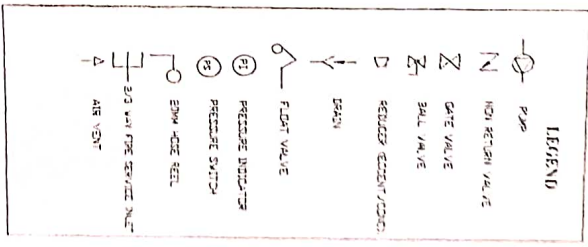 LEGEND
PUMP
NON RETURN VALVE
GATE VALVE
BALL VALVE
REDUCER
DRAIN
FLOAT VALVE
PI PRESSURE INDICATOR
PS PRESSURE SWITCH
HOSE REEL
2/3 WAY FIRE SERVICE INLET
AIR VENT